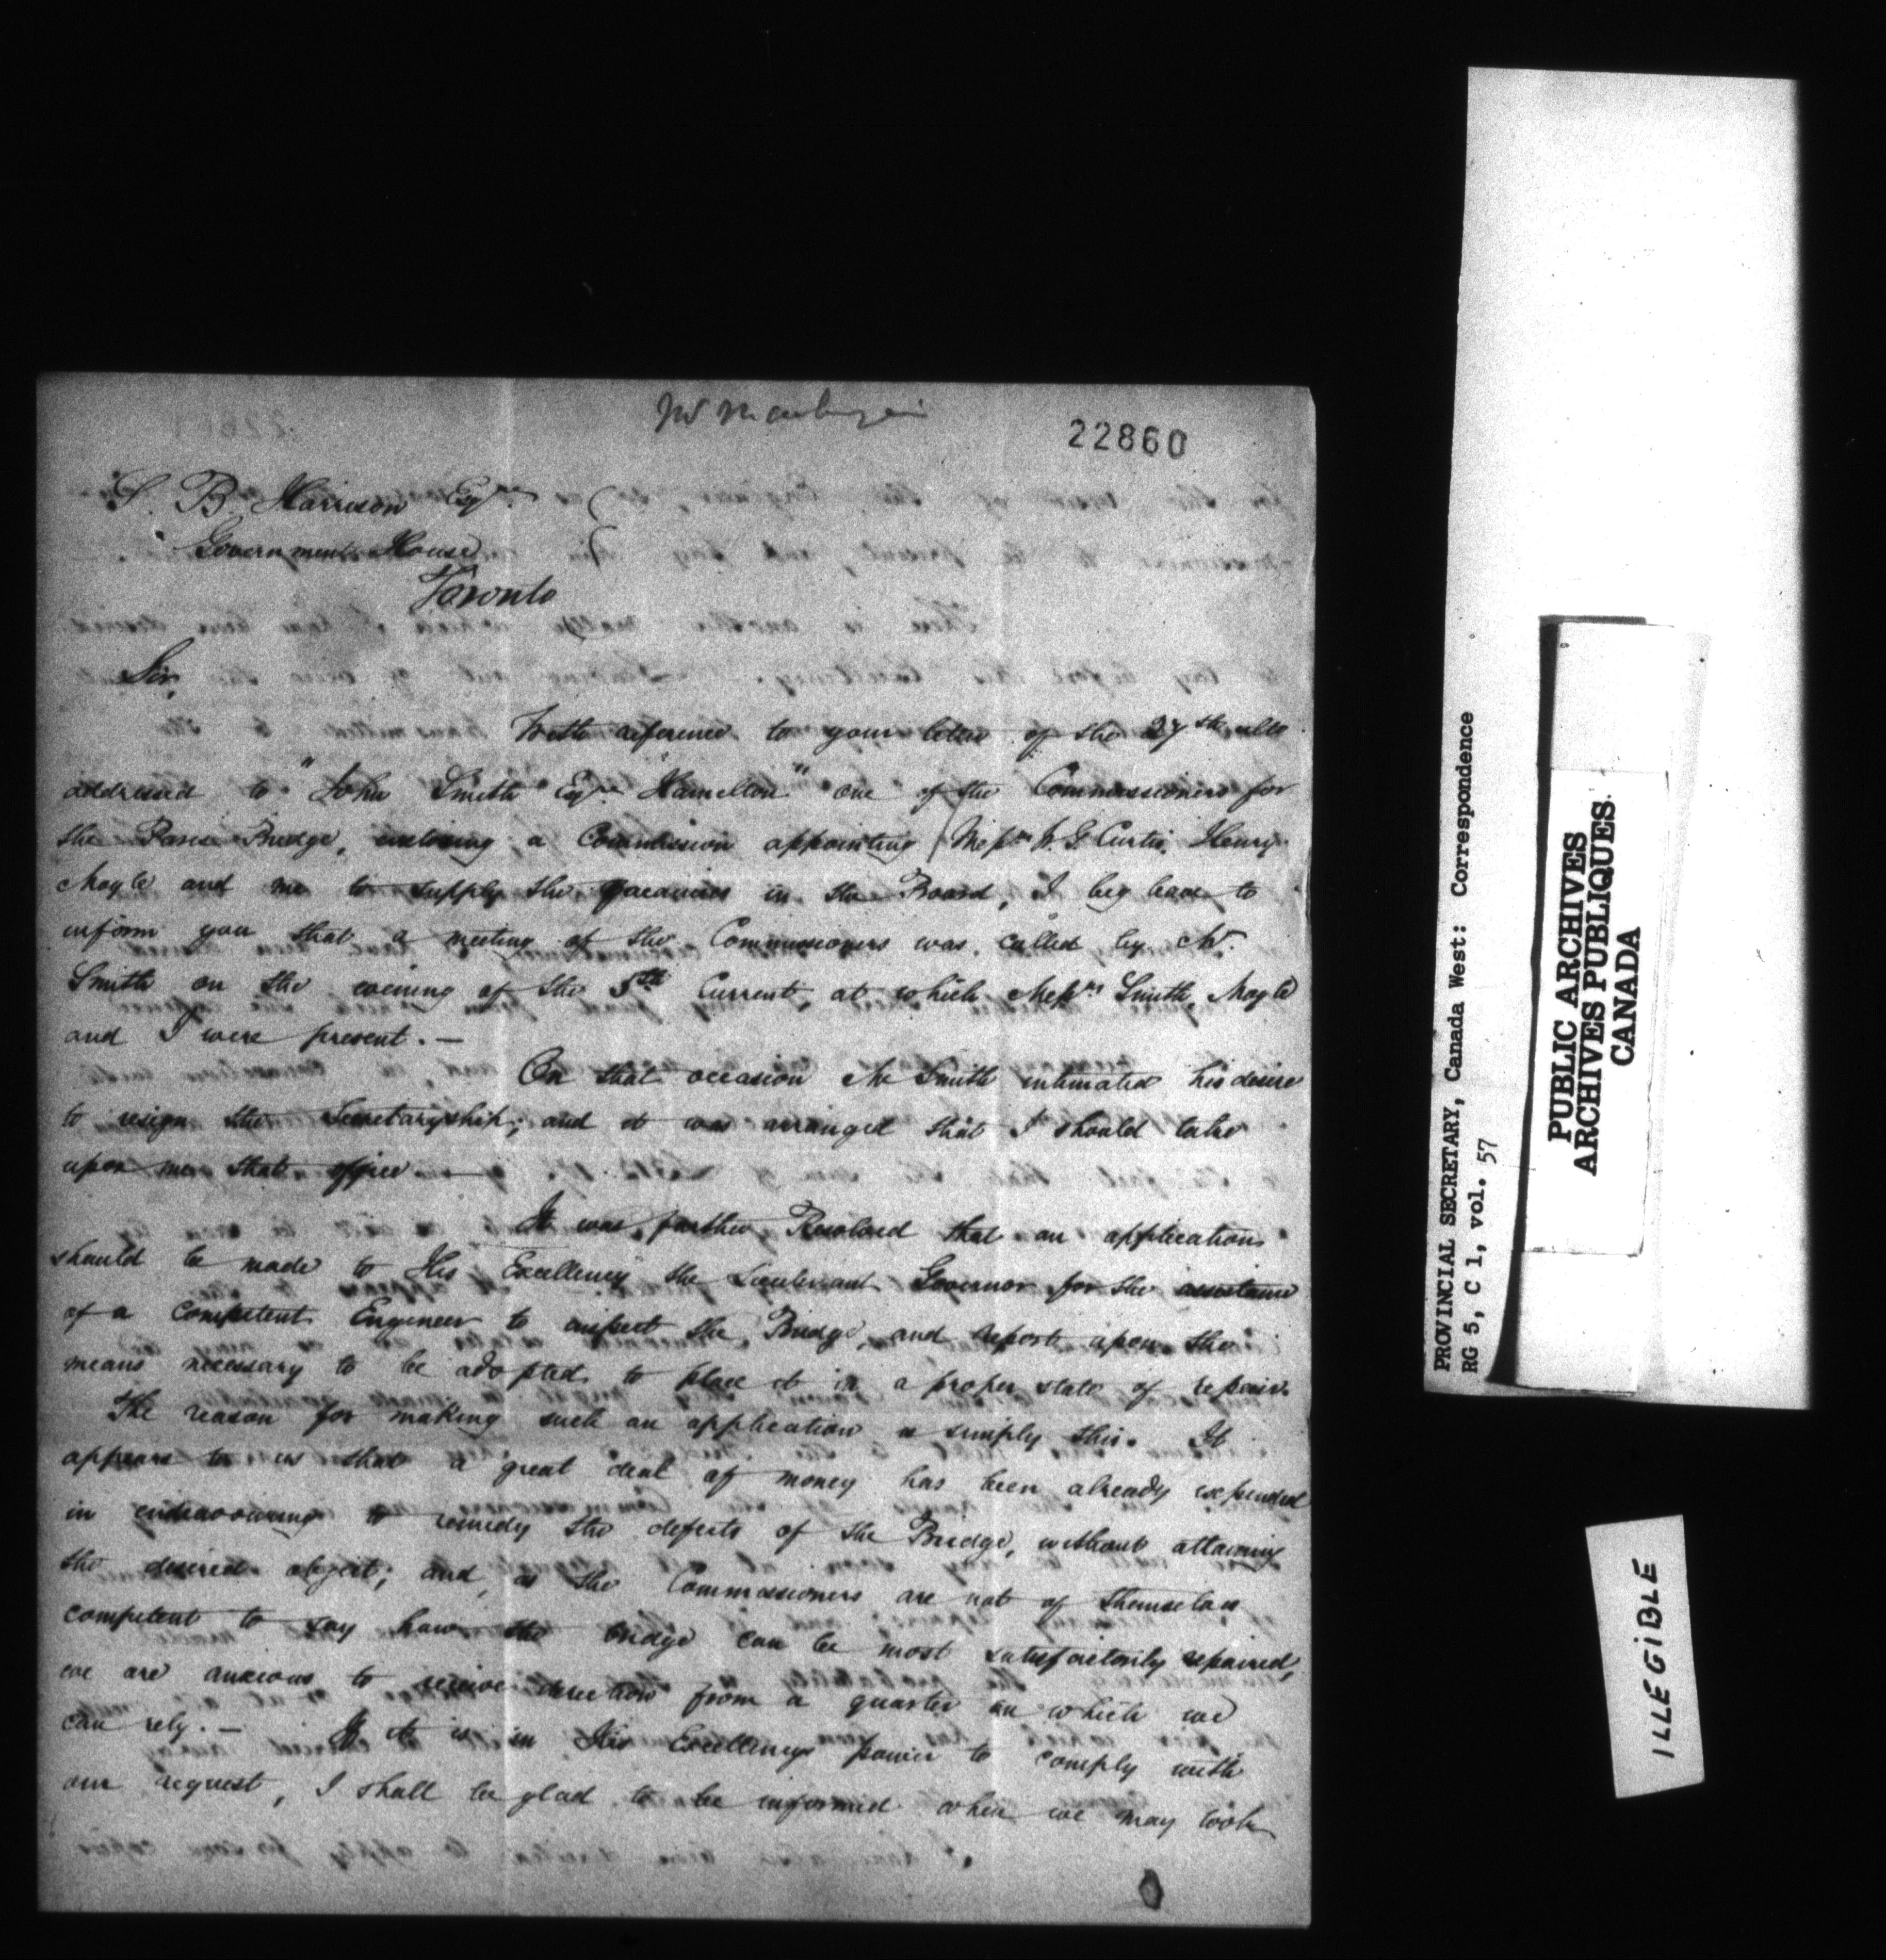 22860
S. B. Harrison Esqre
Government House
Toronto
Sir,
With reference to your letter of the 27th ulto
addressed to "John Smith Esqre Hamilton" one of the Commissioners for
the Paris Bridge, enclosing a Commission appointing Messrs W. G. Curtis, Henry
Moyle and me to supply the vacancies in the Board, I beg leave to
inform you that a meeting of the Commissioners was called by Mr
Smith on the evening of the 5th Current, at which Messrs Smith, Moyle
and I were present. —
On that occasion Mr Smith intimated his desire
to resign the Secretaryship; and it was arranged that I should take
upon me that office —
It was further Resolved that an application
should be made to His Excellency the Lieutenant Governor for the assistance
of a competent Engineer to inspect the Bridge, and report upon the
means necessary to be adopted to place it in a proper state of repair.
The reason for making such an application is simply this. It
appears to us that a great deal of money has been already expended
in endeavouring to remedy the defects of the Bridge, without attaining
the desired object; and, as the Commissioners are not of themselves
competent to say how the bridge can be most satisfactorily repaired,
we are anxious to receive direction from a quarter on which we
can rely. — If it is in His Excellency's power to comply with
our request, I shall be glad to be informed when we may look
PROVINCIAL SECRETARY, Canada West: Correspondence
RG 5, C 1, vol. 57
PUBLIC ARCHIVES
ARCHIVES PUBLIQUES
CANADA
ILLEGIBLE